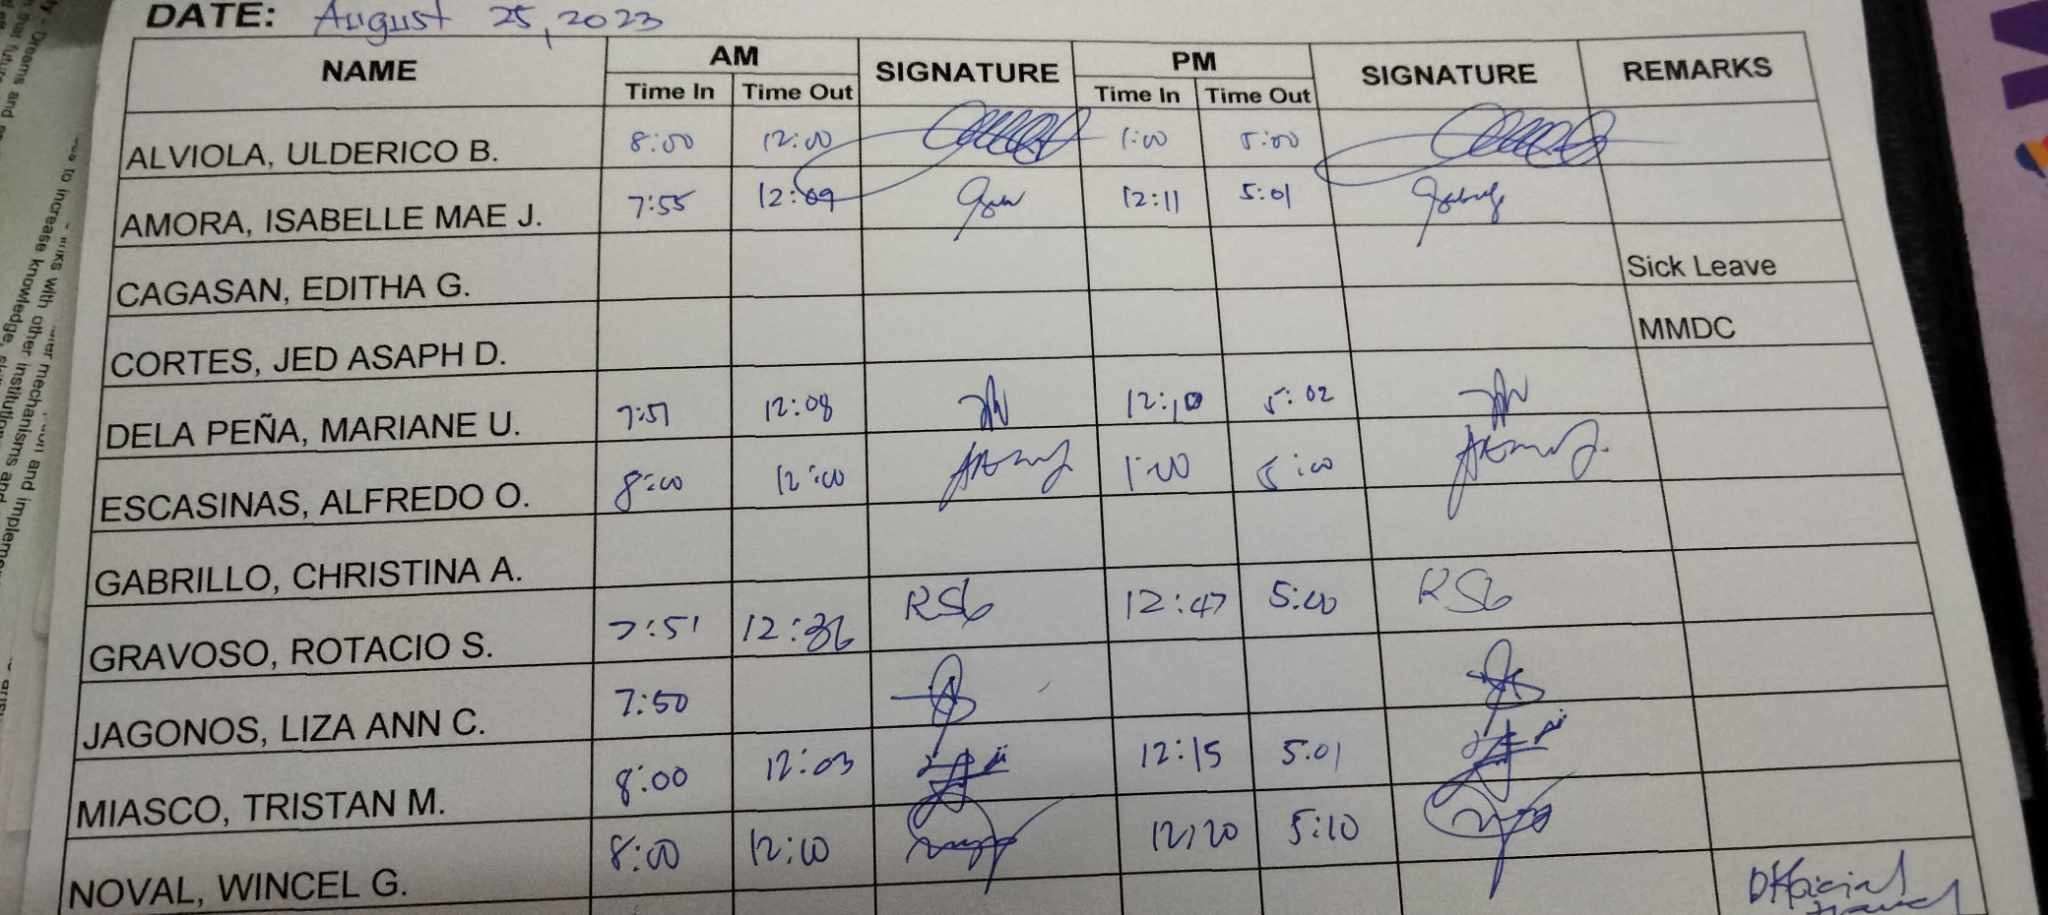 DATE: August 25, 2023
NAME AM SIGNATURE PM SIGNATURE REMARKS
Time In Time Out Time In Time Out
ALVIOLA, ULDERICO B. 8:00 12:00 1:00 5:00
AMORA, ISABELLE MAE J. 7:55 12:09 12:11 5:01
CAGASAN, EDITHA G. Sick Leave
CORTES, JED ASAPH D. MMDC
DELA PEÑA, MARIANE U. 7:51 12:08 12:10 5:02
ESCASINAS, ALFREDO O. 8:00 12:00 1:00 5:00
GABRILLO, CHRISTINA A.
GRAVOSO, ROTACIO S. 7:51 12:36 RSG 12:47 5:00 RSG
JAGONOS, LIZA ANN C. 7:50
MIASCO, TRISTAN M. 8:00 12:03 12:15 5:01
NOVAL, WINCEL G. 8:00 12:10 12:20 5:10
Official
travel